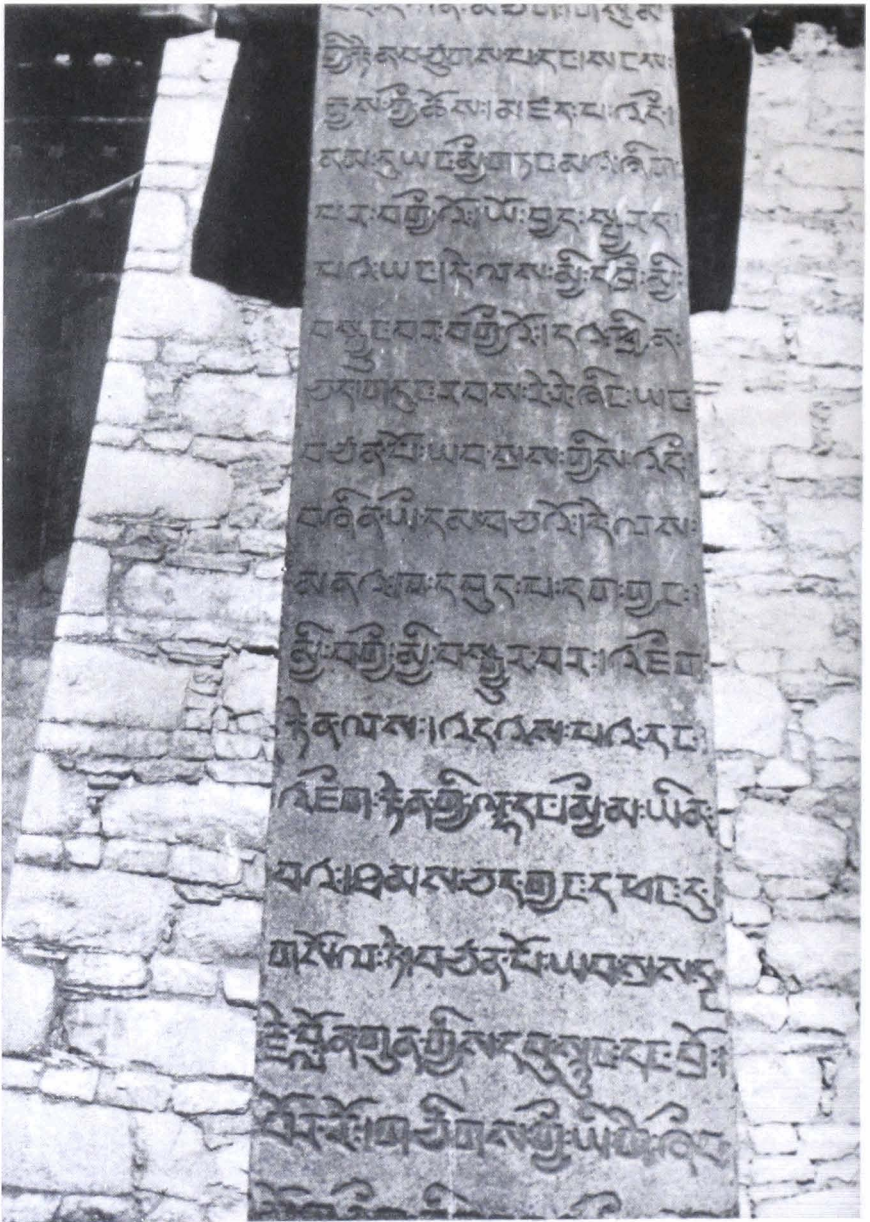 གྱི་རྟེན་བཙུགས་པ་དང༌།སངས་
རྒྱས་ཀྱི་ཆོས།མཛད་པ་འདི།
ནམ་དུ་ཡང་མྱི་གཏང་མ་ཞིག་
པར་བགྱིའོ།ཡོ་བྱད་སྦྱར་
པའ་ཡང༌།དེ་ལས་མྱི་དབྲི་མྱི་
བསྐྱུང་བར་བགྱིའོ།ད་འཕྱིན་
ཅད།གདུང་རབས་རེ་རེ་ཞིང་ཡང་
བཙན་པོ་ཡབ་སྲས་གྱིས་འདི་
བཞིན་ཡི་དམ་བཅའོ།དེ་ལས་
མནའ་ཁ་དབུད་པ་དག་ཀྱང༌།
མྱི་བགྱི་མྱི་བསྒྱུར་བར།འཇིག་
རྟེན་ལས།འདའས་པའ་དང་
འཇིག་རྟེན་གྱི་ལྷ་དང༌།མྱི་མ་ཡིན་
བའ།ཐམས་ཅད་ཀྱང་དཔང་དུ་
གསོལ་ཏེ།བཙན་པོ་ཡབ་སྲས་ད
རྗེ་བློན་གུན་གྱིས་དབུ་སྙུང་དང་བྲོ་
བོར་རོ།གཙིགས་གྱི་ཡི་གེ་ཞིབ་